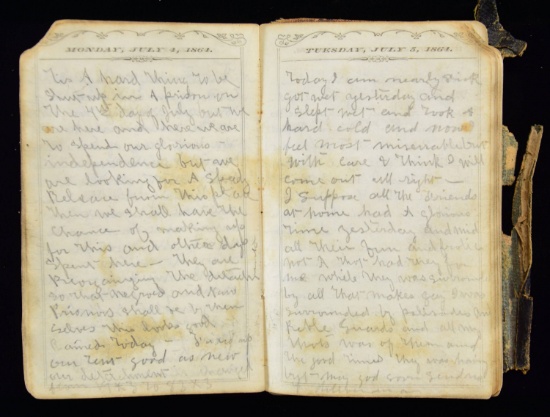 MONDAY, JULY 4, 1864.
Tis A hard thing to be
Shut up in A prison on
the 4th day of July but we
are here and here we are
to spend our glorious
independence but we
are looking for A Speedy
Release from this place
then we shall have the
Chance of making up
for this and other days
Spent here — they are
Reorganizing the detachments
so that no good and
Prisnors shall be by them
selves this looks good
Rained today —
our tent good as new
our detachment changed
from
TUESDAY, JULY 5, 1864.
Today I am nearly Sick
got wet yesterday and
Slept wet and took A
hard cold and now
feel most miserable but
With care I think I will
come out all right —
I Suppose all the friends
at home had A glorious
time yesterday and
all their fun & frolic
not A thot had they for
me while they was surrounded
by all that makes gay I was
surrounded by palisades and
Rebble Guards and all my
thots was of them and
the good times they was having
but may god soon